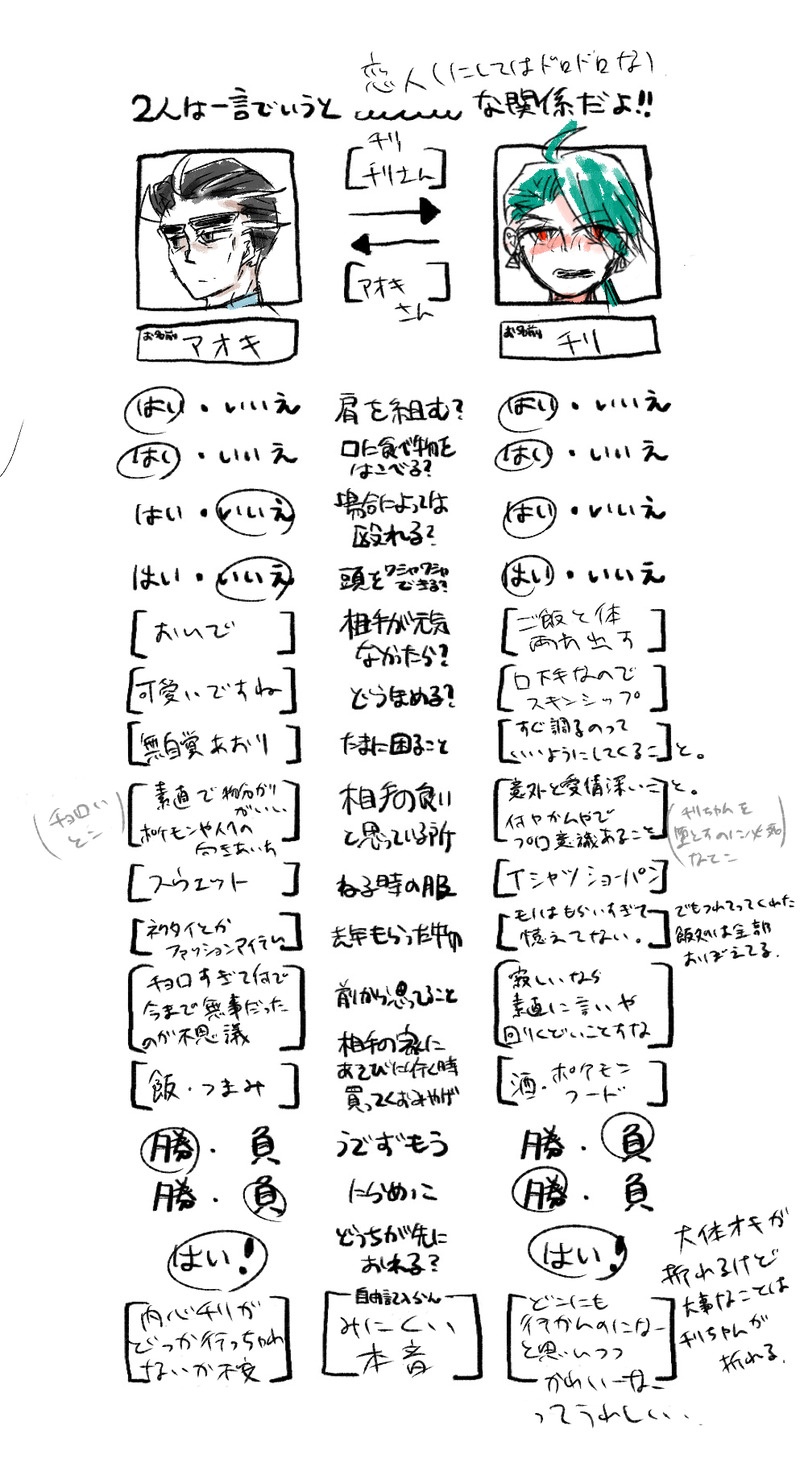 恋人(にしてはドロドロな)
2人は一言でいうと な関係だよ!!
チリ
チリさん
アオキ
さん
お名前 アオキ
お名前 チリ
はい・いいえ 肩を組む? はい・いいえ
はい・いいえ 口に食べ物を はい・いいえ
はこべる?
はい・いいえ 場合によっては はい・いいえ
殴れる?
はい・いいえ 頭をワシャワシャ はい・いいえ
できる?
おいで 相手が元気 ご飯と体
なかったら? 両方出す
可愛いですね どうほめる? 口下手なので
スキンシップ
無自覚あおり たまに困ること すぐ調子のって
いいようにしてくること。
素直で物分かり 相手の良い 意外と愛情深いこと。
がいい と思っている所 何やかんやで
ポケモンや人への プロ意識あること
向きあいち
(チョロい
とこ)
(チリちゃんを
堕とすのに必死
なとこ
スウェット ねる時の服 Tシャツショーパン
ネクタイとか 去年もらった物 モノはもらいすぎて
ファッションアイテム 憶えてない。
でもつれてってくれた
飯処は全部
おぼえてる.
チョロすぎて何で 前から思ってること 寂しいなら
今まで無事だった 素直に言いや
のか不思議 回りくどいことすな
飯・つまみ 相手の家に 酒・ポケモン
あそびに行く時 フード
買ってくおみやげ
勝・負 うでずもう 勝・負
勝・負 にらめっこ 勝・負
はい! どっちが先に はい!
おれる?
大体オキが
折れるけど
大事なことは
チリちゃんが
折れる.
自由記入らん
内心チリが みにくい どこにも
どっか行っちゃわ 本音 行かんのになー
ないか不安 と思いつつ
かわいーなー
ってうれしい...